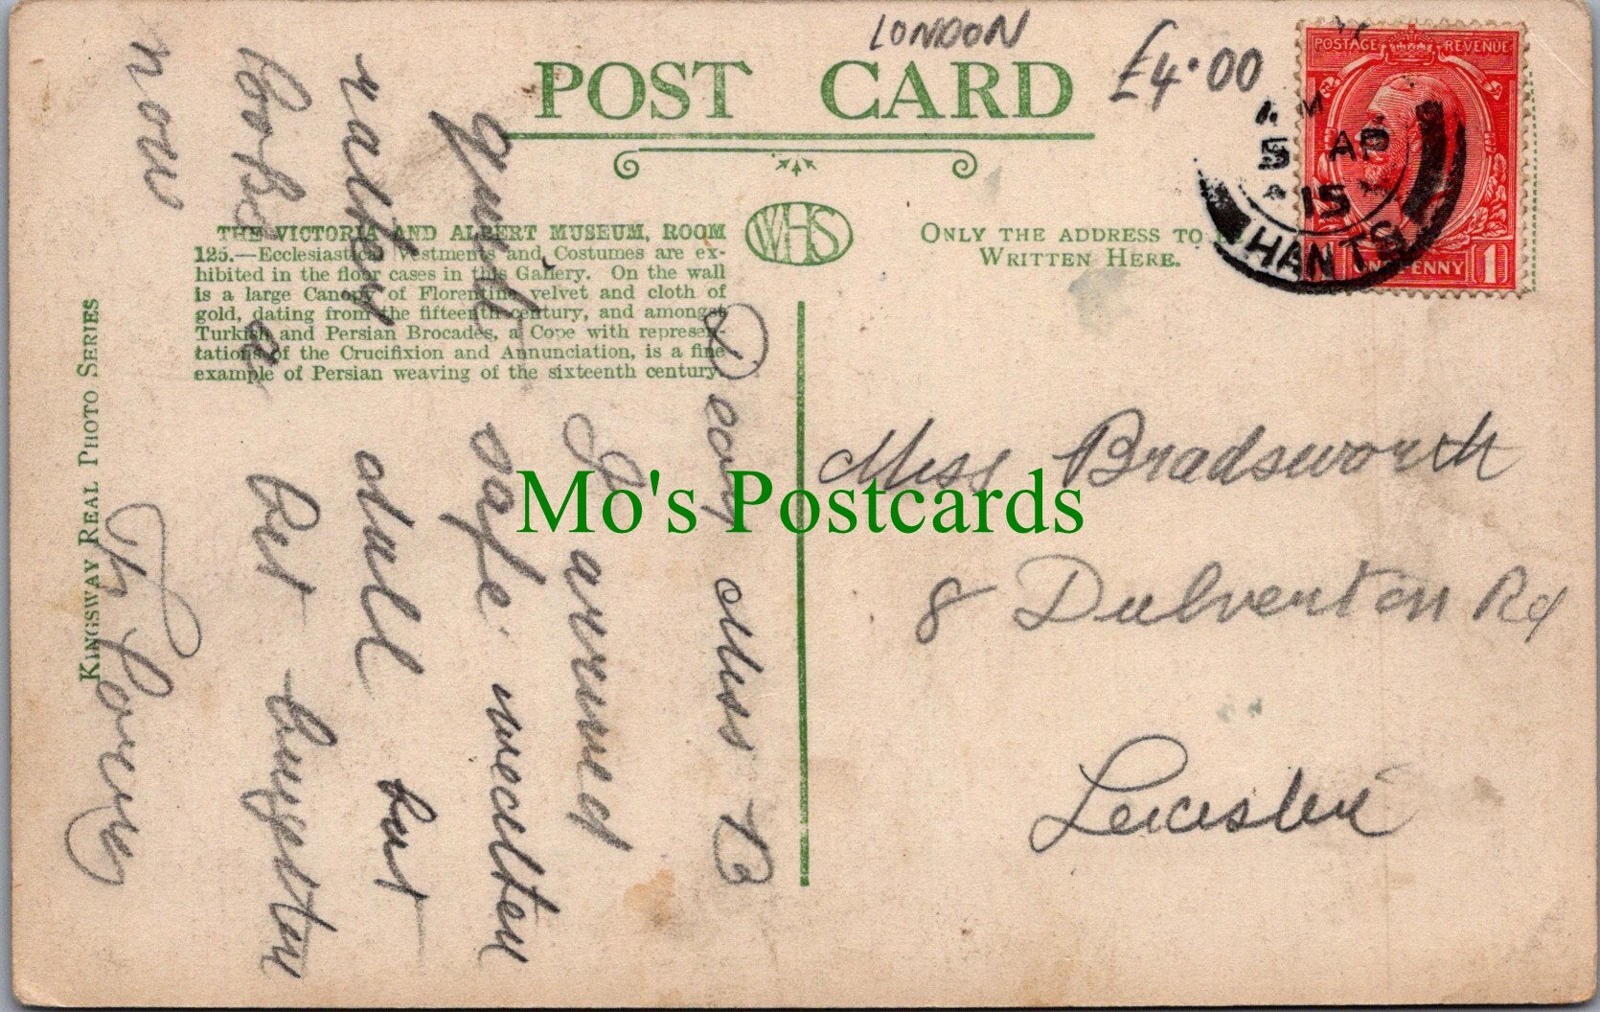 LONDON
£4.00
POST CARD
POSTAGE REVENUE
ONE PENNY
1
AM
5 AP
15
HANTS
THE VICTORIA AND ALBERT MUSEUM, ROOM
125.—Ecclesiastical Vestments and Costumes are ex-
hibited in the floor cases in this Gallery. On the wall
is a large Canopy of Florentine velvet and cloth of
gold, dating from the fifteenth century, and amongst
Turkish and Persian Brocades, a Cope with represen-
tations of the Crucifixion and Annunciation, is a fine
example of Persian weaving of the sixteenth century.
WHS
ONLY THE ADDRESS TO
WRITTEN HERE.
KINGSWAY REAL PHOTO SERIES
Dear Miss B
I arrived
quite safe
rather dull but
looks a bit
now
Miss Bradsworth
8 Dulverton Rd
Leicester
Mo's Postcards